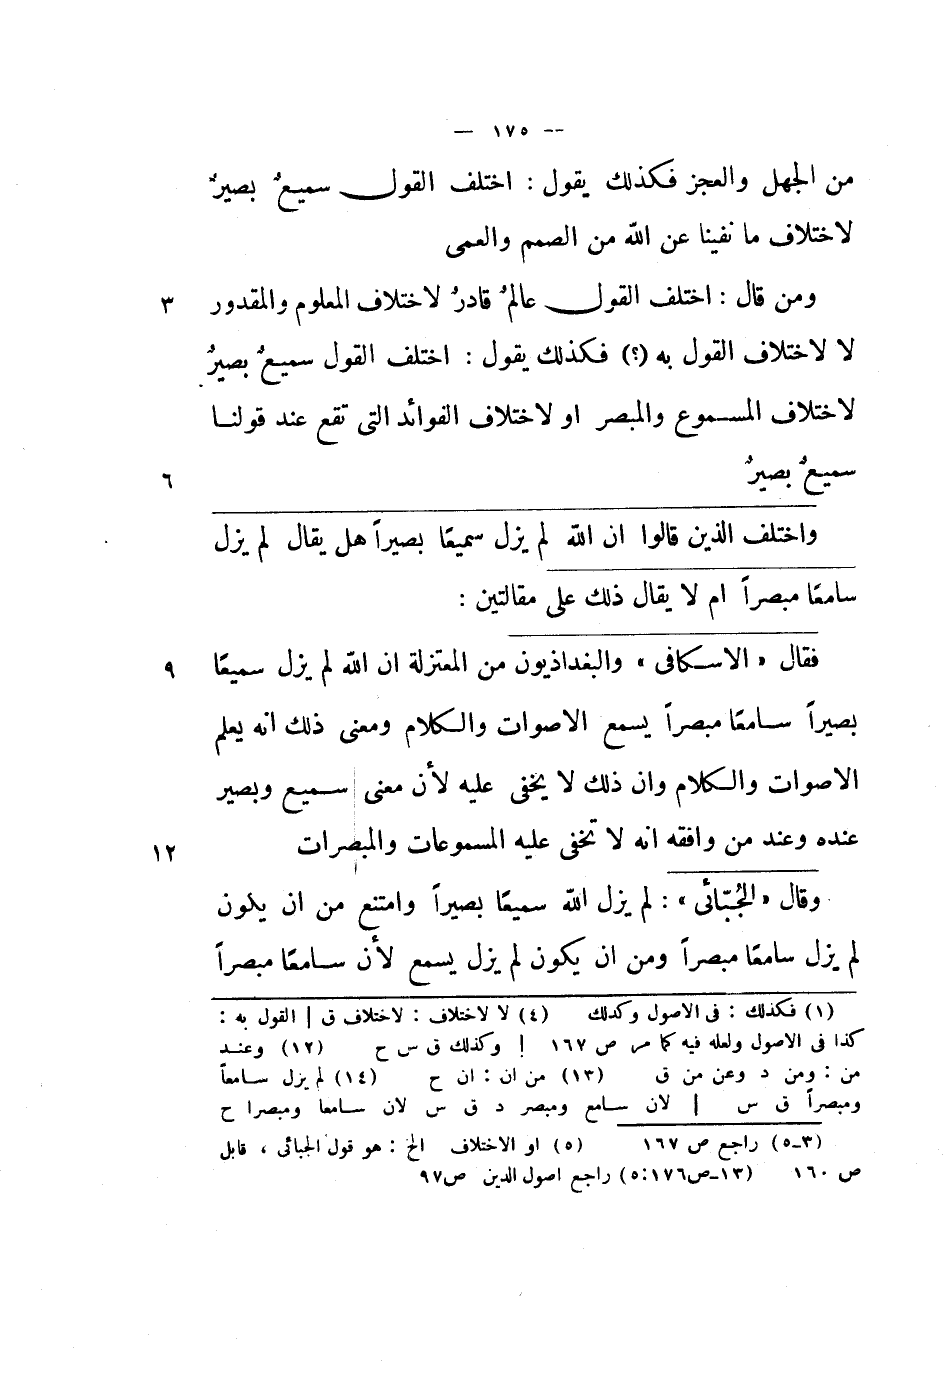 -- ١٧٥ —
من الجهل والعجز فكذلك يقول : اختلف القول سميعٌ بصيرٌ
لاختلاف ما نفينا عن الله من الصمم والعمى
ومن قال : اختلف القول عالمٌ قادرٌ لاختلاف المعلوم والمقدور ٣
لا لاختلاف القول به (؟) فكذلك يقول : اختلف القول سميعٌ بصيرٌ
لاختلاف المسموع والمبصر او لاختلاف الفوائد التى تقع عند قولنا
سميعٌ بصيرٌ ٦
واختلف الذين قالوا ان الله لم يزل سميعًا بصيراً هل يقال لم يزل
سامعًا مبصراً ام لا يقال ذلك على مقالتين :
فقال « الاسكافى » والبغداذيون من المعتزلة ان الله لم يزل سميعًا ٩
بصيراً سامعًا مبصراً يسمع الاصوات والكلام ومعنى ذلك انه يعلم
الاصوات والكلام وان ذلك لا يخفى عليه لأن معنى سميع وبصير
عنده وعند من وافقه انه لا تخفى عليه المسموعات والمبصرات ١٢
وقال « الجُبّائى » : لم يزل الله سميعًا بصيراً وامتنع من ان يكون
لم يزل سامعًا مبصراً ومن ان يكون لم يزل يسمع لأن سامعًا مبصراً
(١) فكذلك : فى الاصول وكدلك (٤) لا لاختلاف : لاختلاف ق | القول به :
كذا فى الاصول ولعله فيه كما مر ص ١٦٧ | وكذلك ق س ح (١٢) وعند
من : ومن د وعن من ق (١٣) من ان : ان ح (١٤) لم يزل سامعاً
ومبصراً ق س | لان سامع ومبصر د ق س لان سامعا ومبصرا ح
(٣-٥) راجع ص ١٦٧ (٥) او الاختلاف الخ : هو قول الجبائى ، قابل
ص ١٦٠ (١٣-ص١٧٦:٥) راجع اصول الدين ص٩٧